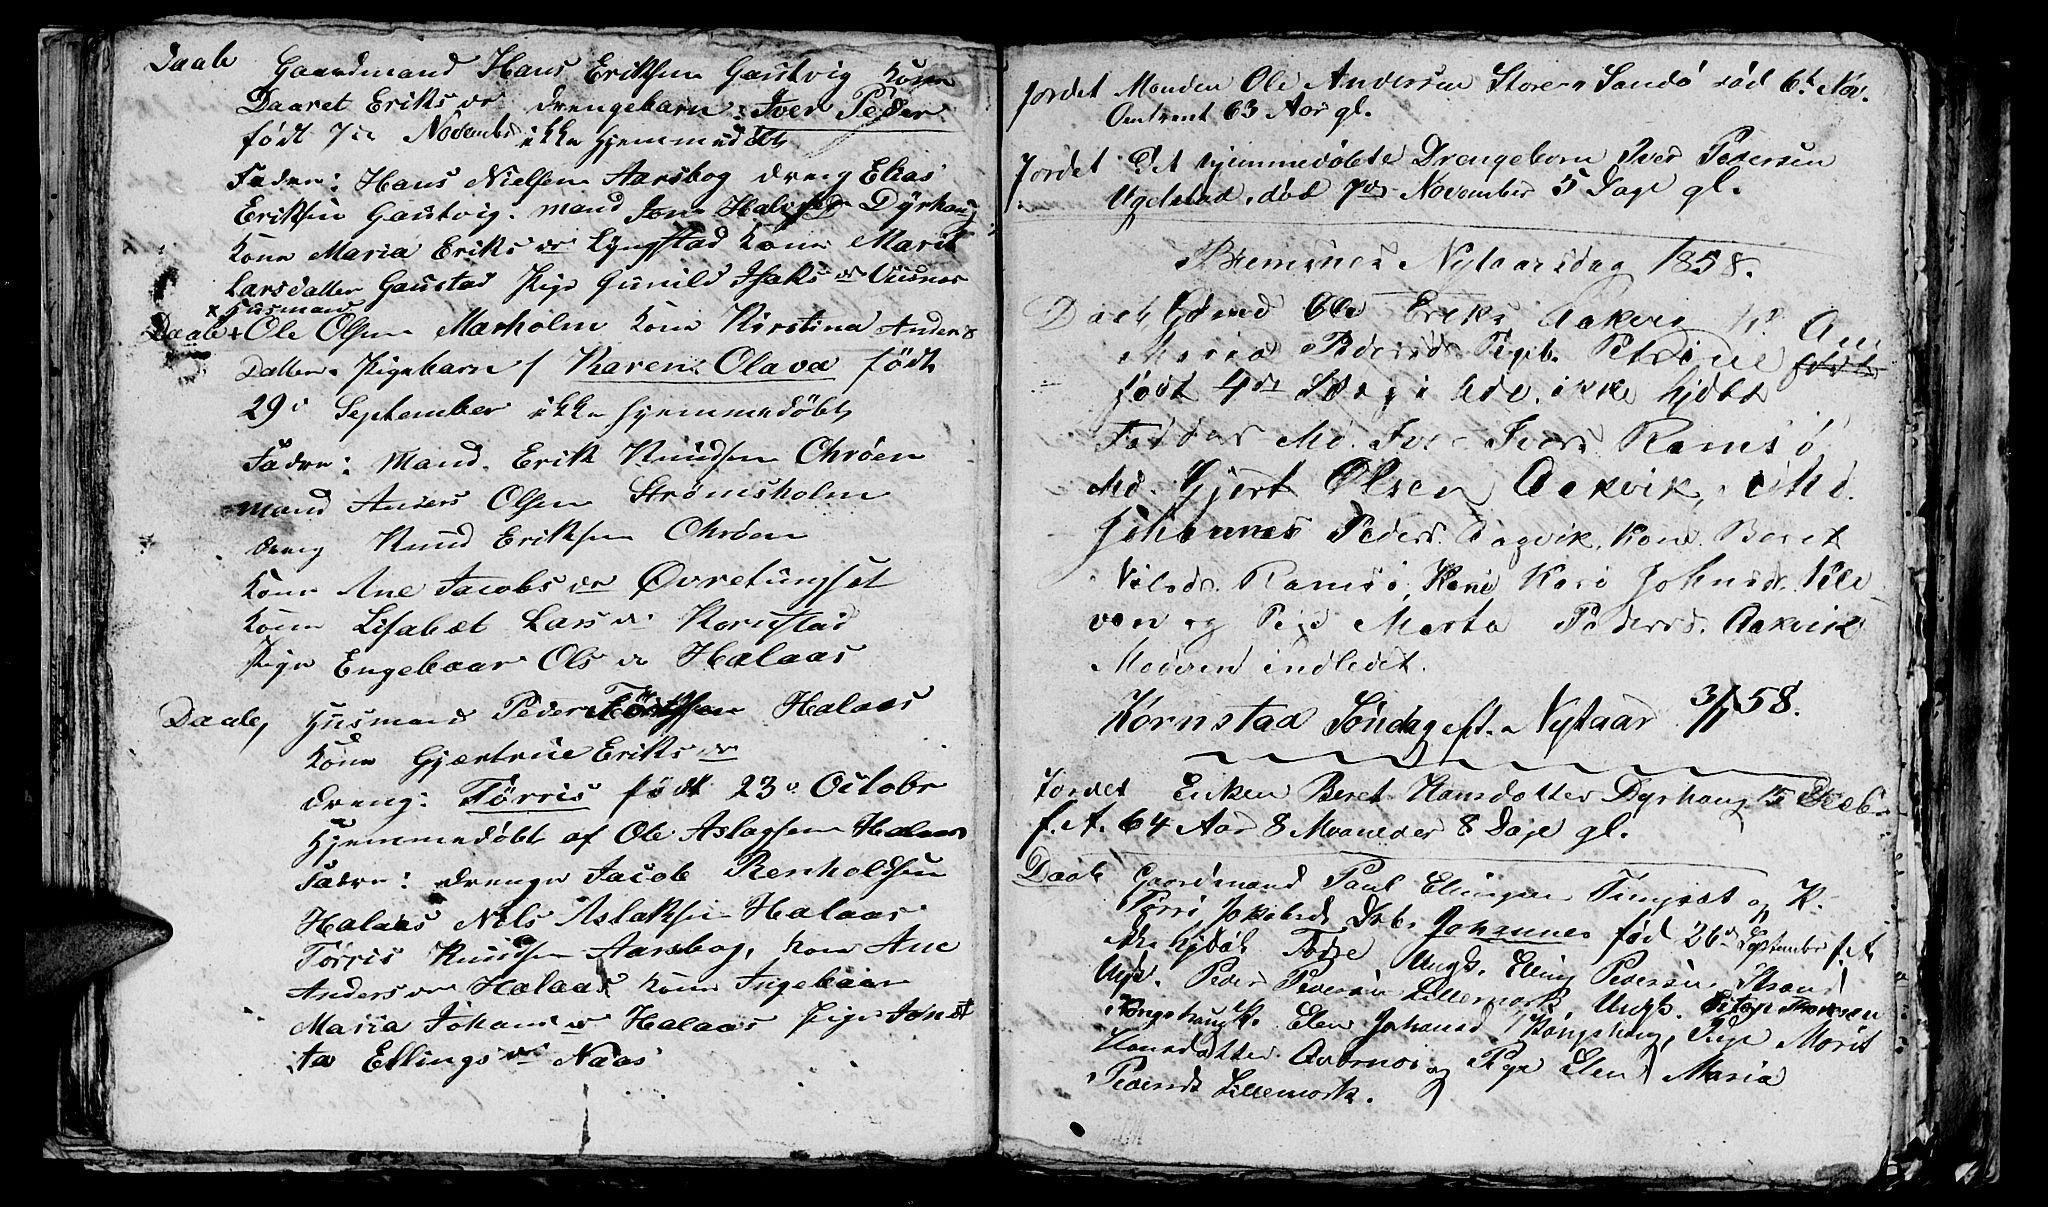 Daab Gaardmand Hans Eriksen Gaustvig Kone
Daaret Eriks dr drengebarn: Iver Peder
født 7de November ikke hjemmedøbt
Fadre: Hans Nielsen Aarsbog dreng Elias
Eriksen Gaustvig. mand Jon Halvorsen Dyrhaug
Kone Maria Eriks dr Lyngstad Kone Marit
Larsdatter Gaustad Pige Gunild Isaks dr Vusnes
x Husmand
Daab + Ole Olsen Marholm Kone Kirstina Anders
Datter. Pigebarn / Karen Olava født
29de September ikke hjemmedøbt
Fadre: Mand. Erik Knudsen Ohrøen
mand Anders Olsen Strømsholm
dreng Knud Eriksen Ohrøen
Kone Ane Jacobs dr Øvretungset
Kone Lisabet Lars dr Kornstad
Pige Engebaar Ols dr Halaas
Daab, Husmand Peder Halaas
Kone Gjertrue Eriks dr
dreng: Tørris født 23de Octobr
Hjemmedøbt af Ole Aslagsen Halaas
Fadre: drenge Jacob Renholdsen
Halaas Nels Aslaksen Halaas
Tørris Knudsen Aarsbog, kone Ane
Anders dr Halaas kone Ingebaar
Maria Johans dr Halaas Pige Jonet
ta Ellings dr Naas
Jordet Manden Ole Andersen Store Sandø død 6te Nov.
Omtrent 63 Aar gl.
Jordet Det hjemmedøbte Drengebarn Iver Pedersen
Ugelstad, død 7de November 5 Dage gl.
Bremsnes Nytaarsdag 1858.
Daab Gmd Ole Eriks Aakvig K. An
Maria Pedersdr Pigeb. Petrine født
født 4de ikke hjdbt
Faddere Md. Iver Ivers Ramsø
Md. Gjert Olsen Aakvik,
Johannes Peders. Aagvik, Kone Beret
Nilsdr. Ramsø, Kone Kari Johnsdr. Kle
ven og Pige Marta Pedersd. Aakvik
Moderen indledet.
Kornstad Søndag eft. Nytaar 3/1 58.
Jordet Enken Beret Hansdatter Dyrhaug 15 Decb.
f. A. 64 Aar 8 Maaneder 8 Dage gl.
Daab Gaardmand Paul Ellingsen Tungset og K.
Jakobsd. Drb. Johannes fød 26de September f. A.
ikke hjdøbt Ungk. Elling Pedersen Strand
Ungk. Peder Pedersen Lillemork, Ungk.
Kongshaug K. Elen Johansd Kongshaug, Pige Marit
Hansdatter og Pige Elen Maria
Pedersd Lillemork.